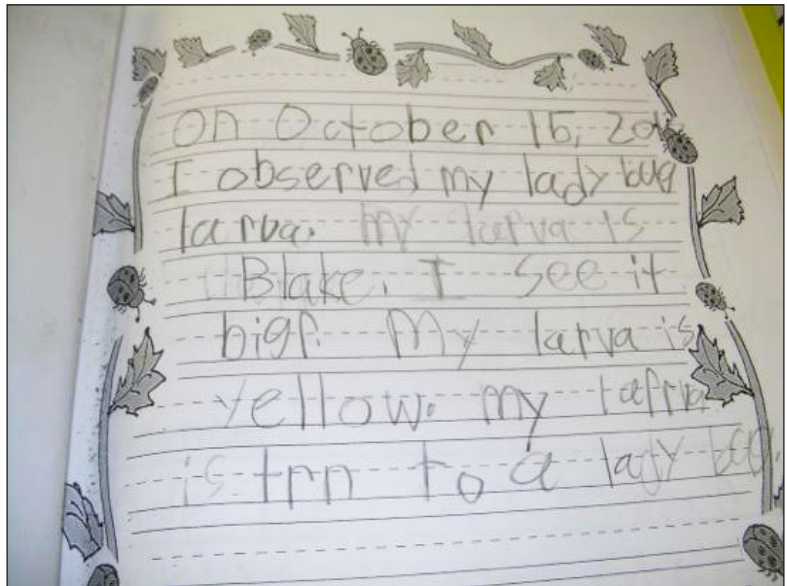 On October 15, 20
I observed my lady bug
larva. My larva is
Blake. I see it
bigr. My larva is
yellow. my larrva
is trn to a lady bug.